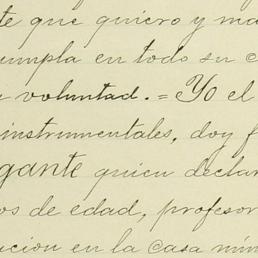 te que quiero y ma
umpla en todo su c
a voluntad. = Yo el
instrumentales, doy f
gante quien declar
os de edad, profesor
ucion en la casa núm